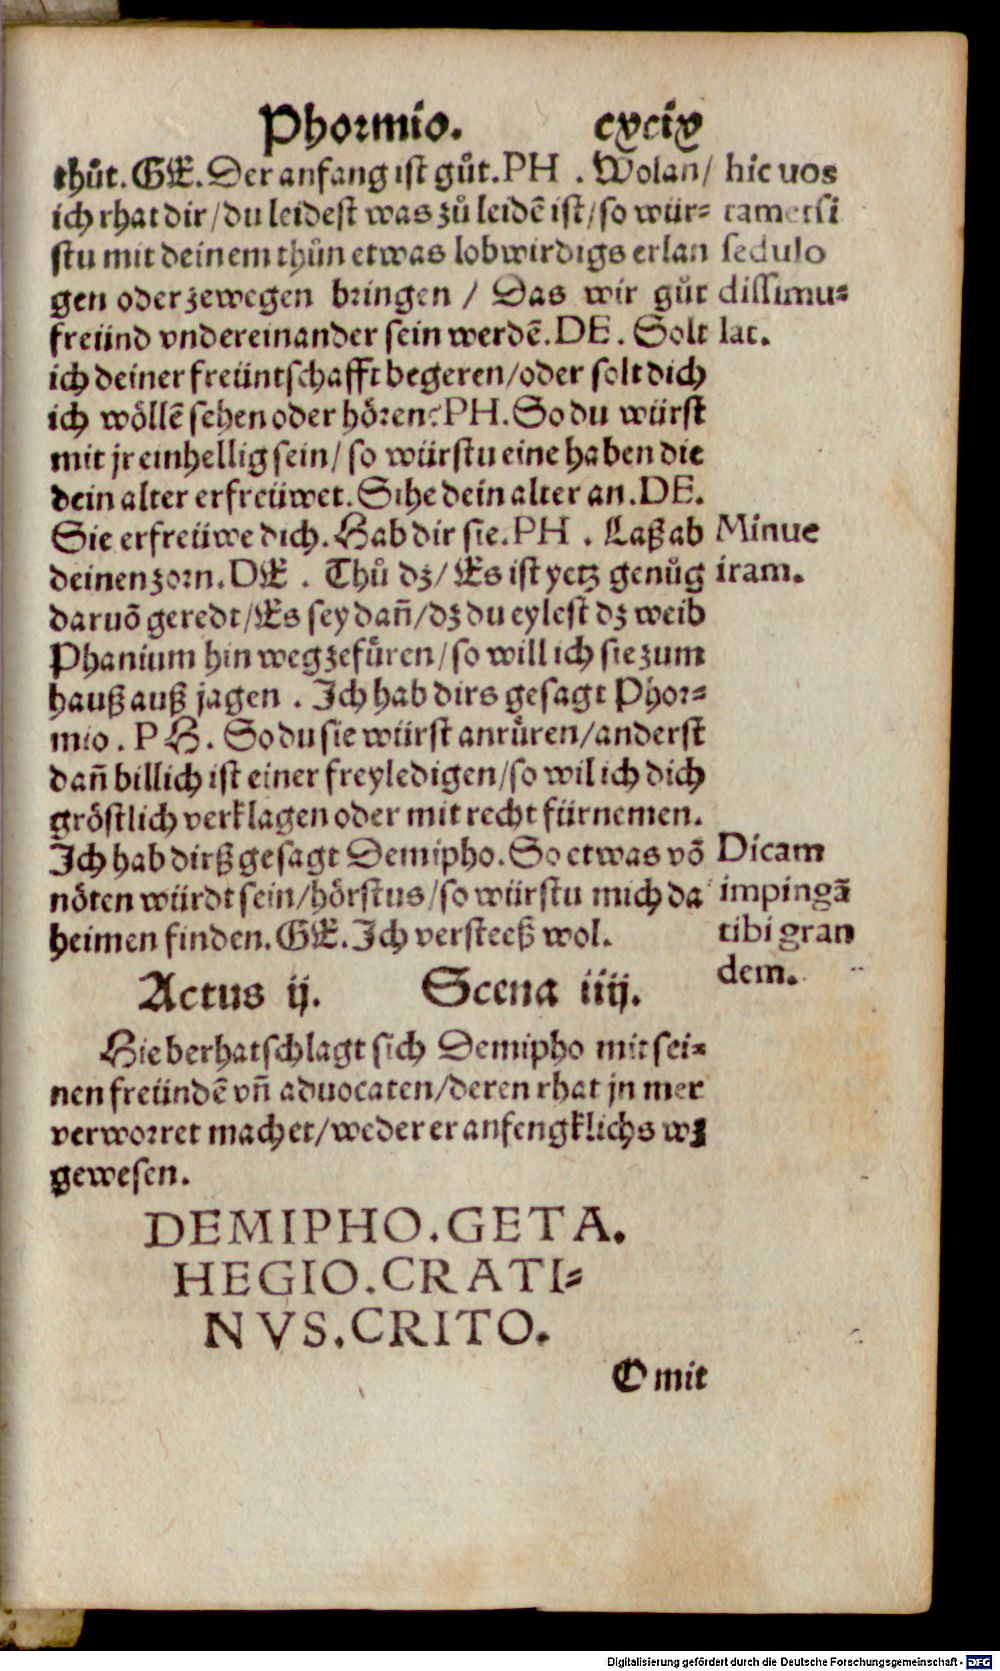 Phormio. cxcix
thůt. GE. Der anfang ist gůt. PH. Wolan/
ich rhat dir/ du leidest was zů leidē ist/ so wür-
stu mit deinem thůn etwas lobwirdigs erlan
gen oder zewegen bringen / Das wir gůt
freünd vndereinander sein werdē. DE. Solt
ich deiner freüntschafft begeren/ oder solt dich
ich wöllē sehen oder hören? PH. So du würst
mit jr einhellig sein/ so würstu eine haben die
dein alter erfreüwet. Sihe dein alter an. DE.
Sie erfreüwe dich. Hab dir sie. PH. Laß ab
deinen zorn. DE. Thů dz/ Es ist yetz genůg
daruō geredt/ Es sey dañ/ dz du eylest dz weib
Phanium hin weg zefüren/ so will ich sie zum
hauß auß jagen. Ich hab dirs gesagt Phor-
mio. PH. So du sie würst anrüren/ anderst
dañ billich ist einer freyledigen/ so wil ich dich
gröstlich verklagen oder mit recht fürnemen.
Ich hab dirß gesagt Demipho. So etwas vō
nöten würdt sein/ hörstus/ so würstu mich da
heimen finden. GE. Ich versteeß wol.
hic uos
tametsi
sedulo
dissimu-
lat.
Minue
iram.
Dicam
impingā
tibi gran
dem.
Actus ij. Scena iiij.
Hie berhatschlagt sich Demipho mit sei-
nen freündē vñ aduocaten/ deren rhat jn mer
verworret machet/ weder er anfengklichs wz
gewesen.
DEMIPHO. GETA.
HEGIO. CRATI-
NVS. CRITO.
O mit
Digitalisierung gefördert durch die Deutsche Forschungsgemeinschaft - DFG